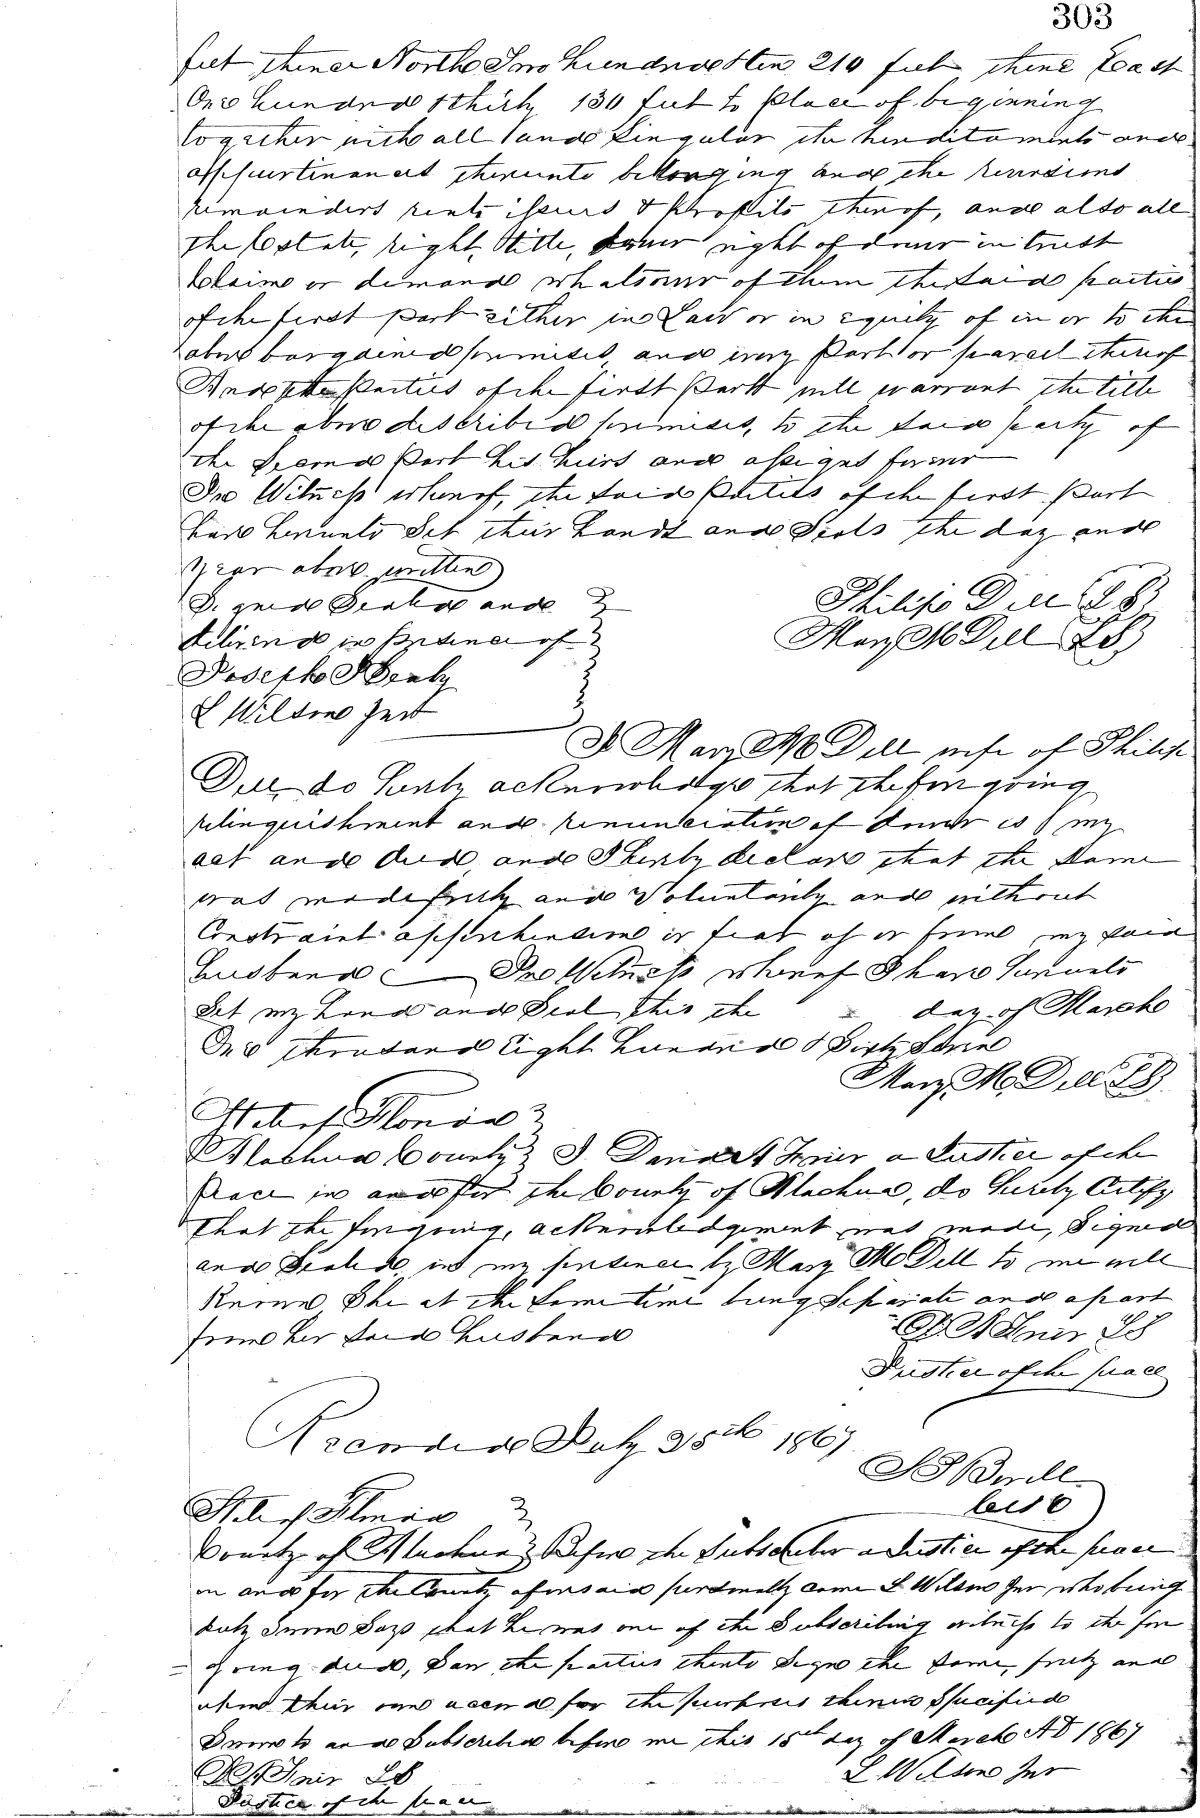 303
feet thence North Two hundred & ten 210 feet thence East
One hundred & thirty 130 feet to place of beginning
together with all and singular the hereditaments and
appurtinances thereunto belonging and the reversions
remainders rents issues & profits thereof, and also all
the Estate, right, title, dower right of dower in trust
Claim or demand whatsoever of them the said parties
of the first part either in Law or in equity of in or to the
above bargained premises, and every part or parcel thereof
And the parties of the first part will warrant the title
of the above described premises, to the said party of
the Second part his heirs and assigns forever
In Witness whereof, the said parties of the first part
have hereunto Set their hands and Seals the day and
year above written
Signed Sealed and
Philip Dell LS
delivered in presence of
Mary M Dell LS
Joseph
L Wilson Jnr
I Mary M Dell wife of Philip
Dell, do hereby acknowledge that the foregoing
relinquishment and renunciation of dower is my
act and deed, and I hereby declare that the Same
was made freely and Voluntarily and without
Constraint apprehension or fear of or from my said
husband In Witness whereof I have hereunto
Set my hand and Seal this the day of March
One thousand Eight hundred & Sixty Seven
Mary M. Dell LS
State of Florida
Alachua County I a Justice of the
Peace in and for the County of Alachua, do hereby Certify
that the foregoing, acknowledgement was made, Signed
and Sealed, in my presence by Mary M Dell to me well
Known, She at the Same time being Separate and apart
from her said husband
LS
Justice of the peace
Recorded July 25th 1867
Clerk
State of Florida
County of Alachua Before the Subscriber a Justice of the peace
in and for the County aforesaid personally came L Wilson Jnr who being
duly Sworn Says that he was one of the Subscribing witness to the fore
= going deed, Saw the parties thereto Sign the Same, freely and
upon their own accord for the purposes therein Specified
Sworn to and Subscribed before me this 15th day of March AD 1867
LS L Wilson Jnr
Justice of the peace